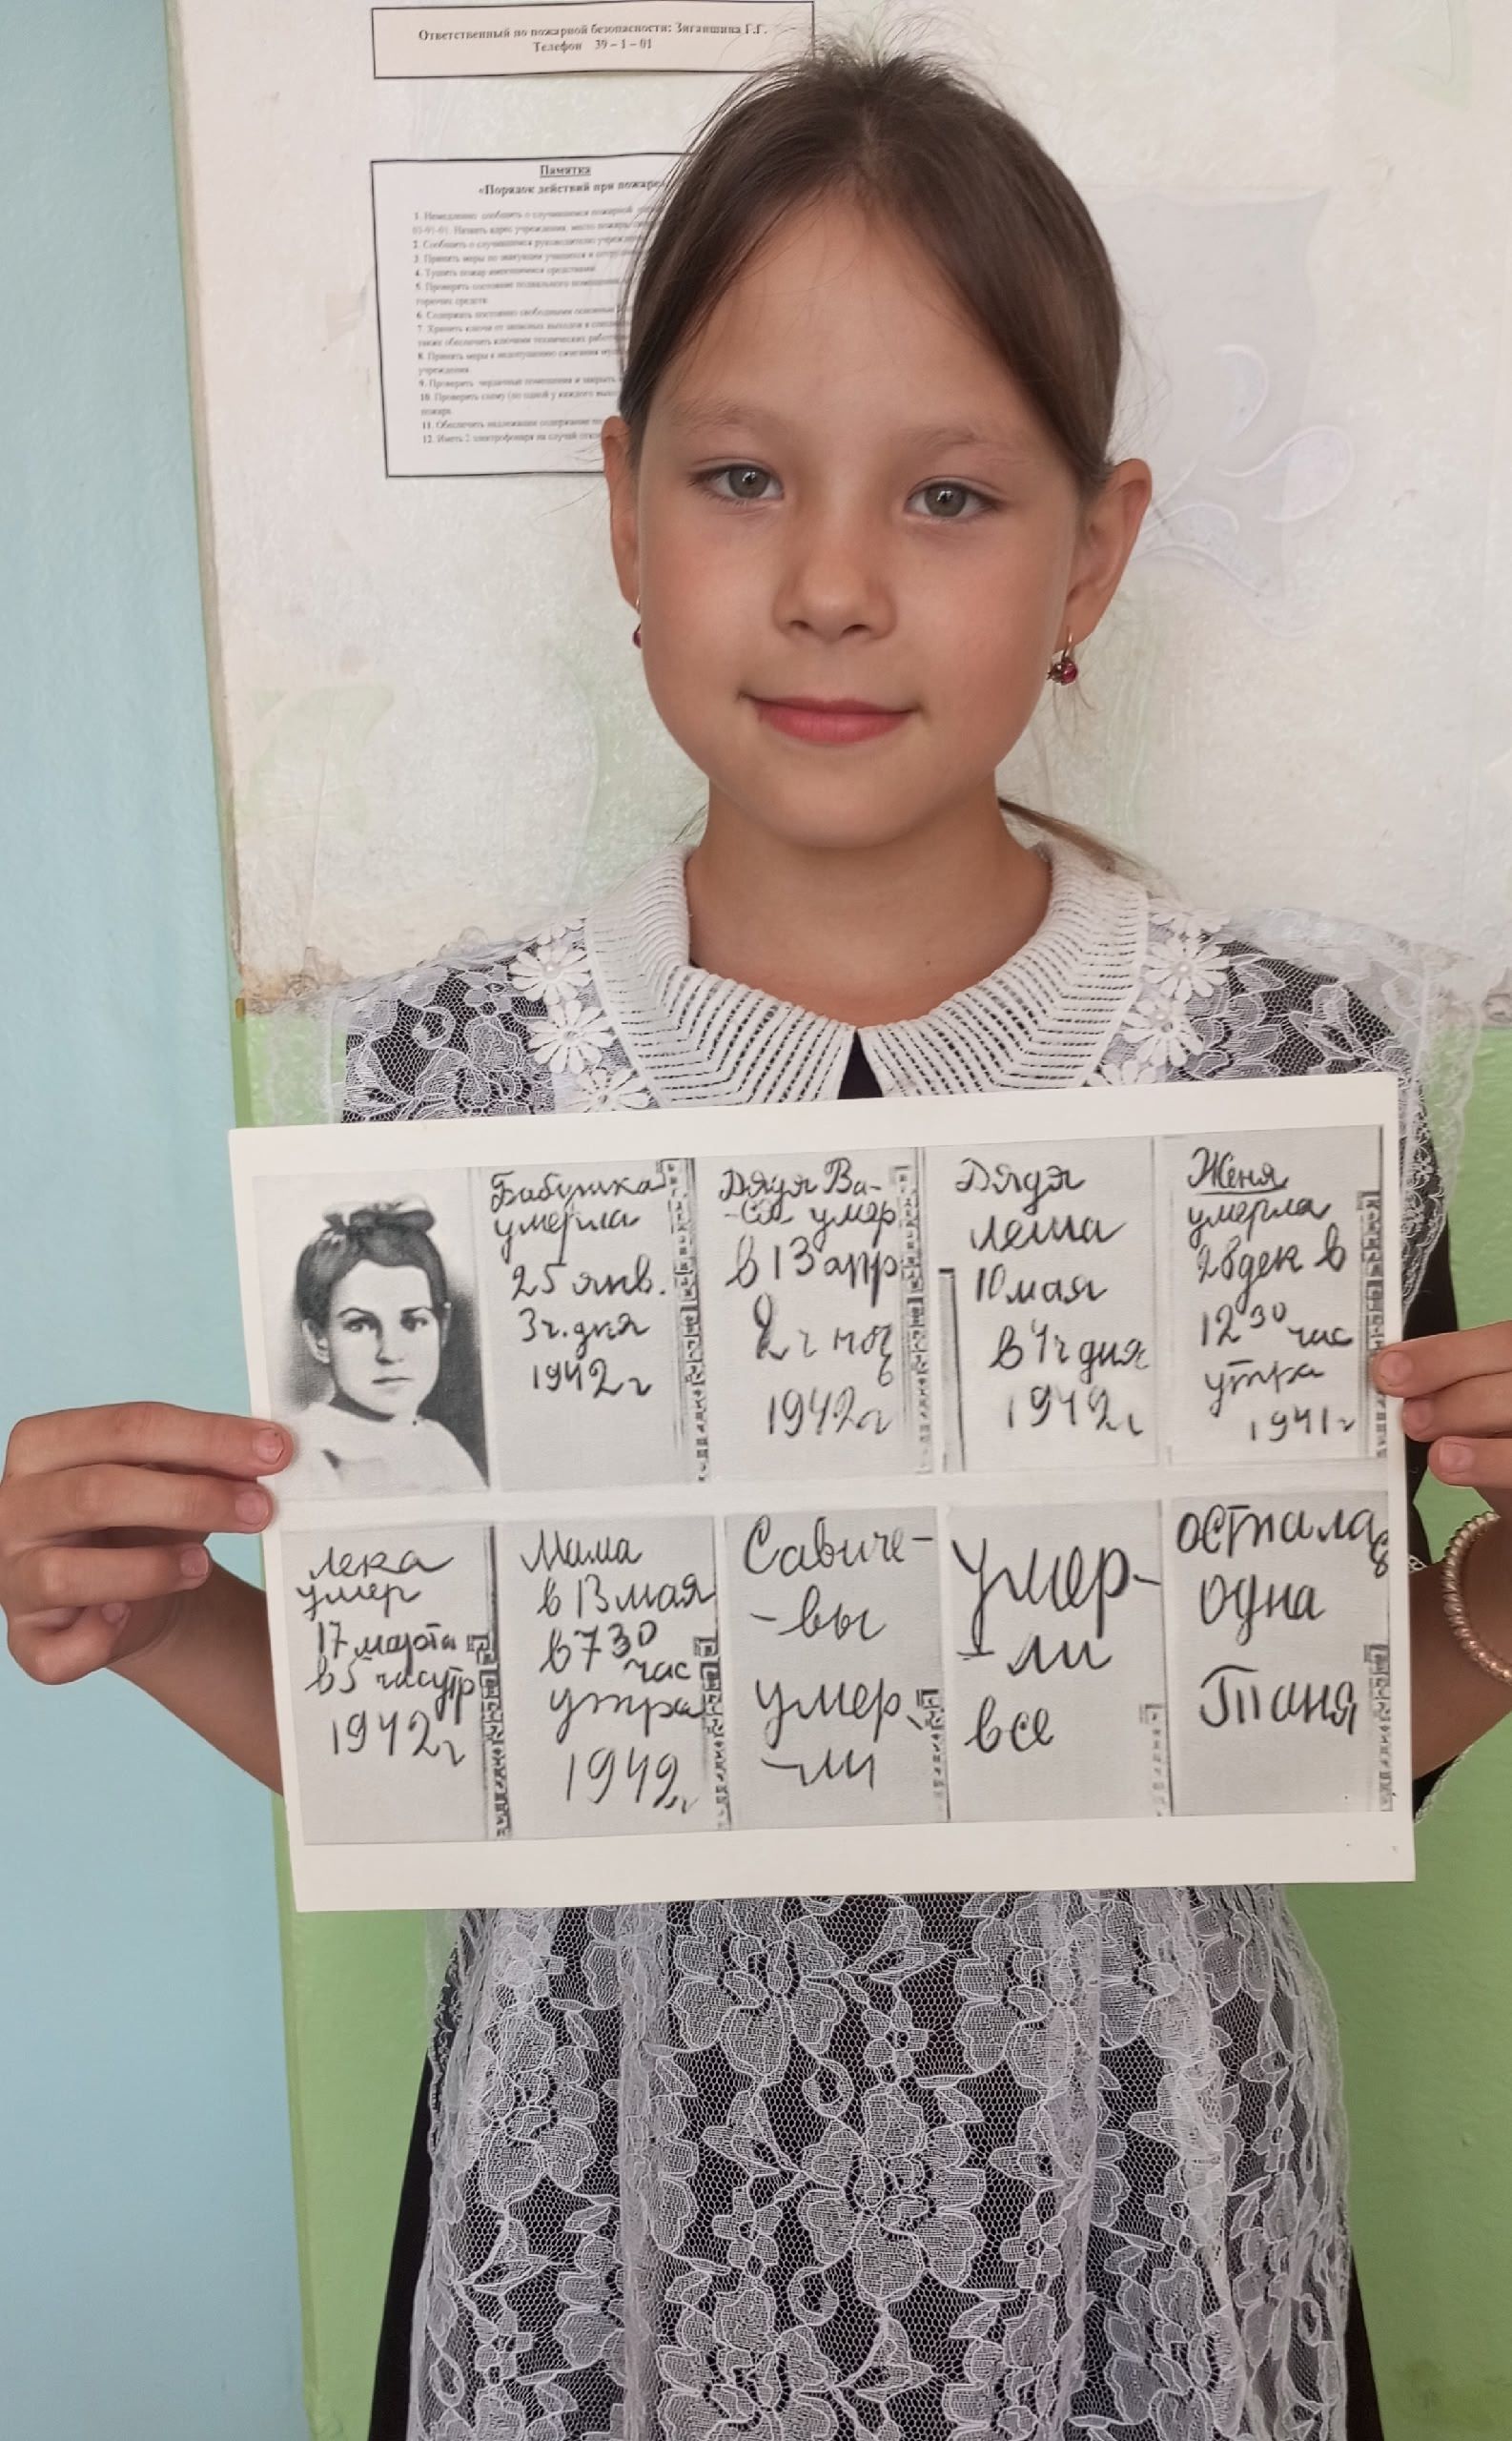 Ответственный по пожарной безопасности: Зиганшина Г.Г.
Телефон 39 – 1 – 01
Памятка
«Порядок действий при пожаре»
1. Немедленно сообщить о случившемся пожарной
01-91-01. Назвать адрес учреждения, место пожара
2. Сообщить о случившемся руководителю учреждения
3. Принять меры по эвакуации учащихся и сотрудников
4. Тушить пожар имеющимися средствами
5. Проверять состояние подвального помещения
горючих средств
6. Содержать постоянно свободными основные
7. Хранить ключи от запасных выходов в
также обеспечить ключами технических
8. Принять меры к недопущению сжигания
учреждения
9. Проверять чердачные помещения и закрыть
10. Проверить схему (по одной у каждого
пожара
11. Обеспечить надлежащее содержание
12. Иметь 2 электрофонаря на случай
Бабушка
умерла
25 янв.
3 ч. дня
1942 г
Дядя Ва-
-ся умер
в 13 апр
2 ч ноч
1942 г
Дядя
Леша
10 мая
в 4 ч дня
1942 г
Женя
умерла
28 дек в
12 30 час
утра
1941 г
Лека
умер
17 марта
в 5 час утр
1942 г
Мама
в 13 мая
в 7 30
час
утра
1942 г
Савиче-
-вы
умер
-ли
Умер-
-ли
все
Осталась
одна
Таня